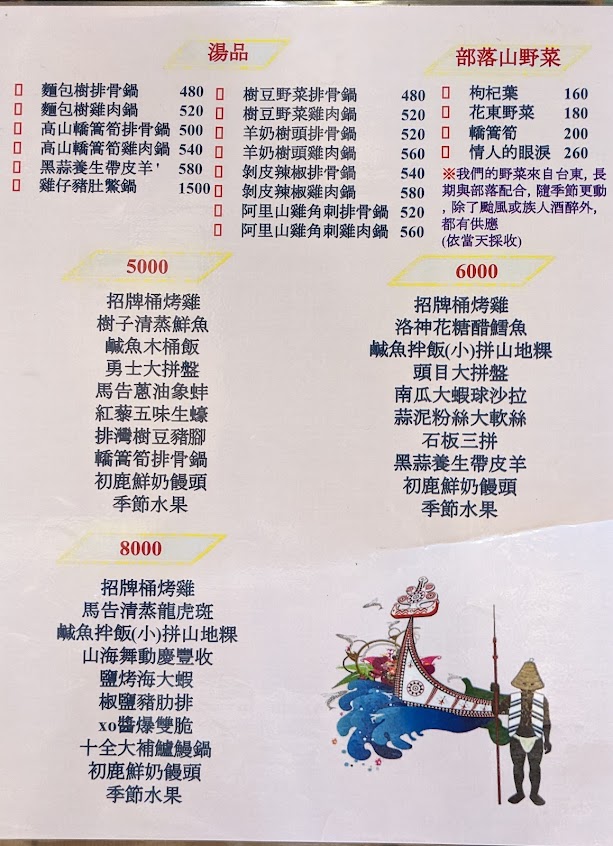 湯品
麵包樹排骨鍋 480
麵包樹雞肉鍋 520
高山轎篙筍排骨鍋 500
高山轎篙筍雞肉鍋 540
黑蒜養生帶皮羊' 580
雞仔豬肚鱉鍋 1500
樹豆野菜排骨鍋 480
樹豆野菜雞肉鍋 520
羊奶樹頭排骨鍋 520
羊奶樹頭雞肉鍋 560
剝皮辣椒排骨鍋 540
剝皮辣椒雞肉鍋 580
阿里山雞角刺排骨鍋 520
阿里山雞角刺雞肉鍋 560
部落山野菜
枸杞葉 160
花東野菜 180
轎篙筍 200
情人的眼淚 260
※我們的野菜來自台東, 長
期與部落配合, 隨季節更動
, 除了颱風或族人酒醉外,
都有供應
(依當天採收)
5000
招牌桶烤雞
樹子清蒸鮮魚
鹹魚木桶飯
勇士大拼盤
馬告蔥油象蚌
紅藜五味生蠔
排灣樹豆豬腳
轎篙筍排骨鍋
初鹿鮮奶饅頭
季節水果
6000
招牌桶烤雞
洛神花糖醋鱈魚
鹹魚拌飯(小)拼山地粿
頭目大拼盤
南瓜大蝦球沙拉
蒜泥粉絲大軟絲
石板三拼
黑蒜養生帶皮羊
初鹿鮮奶饅頭
季節水果
8000
招牌桶烤雞
馬告清蒸龍虎斑
鹹魚拌飯(小)拼山地粿
山海舞動慶豐收
鹽烤海大蝦
椒鹽豬肋排
xo醬爆雙脆
十全大補鱸鰻鍋
初鹿鮮奶饅頭
季節水果